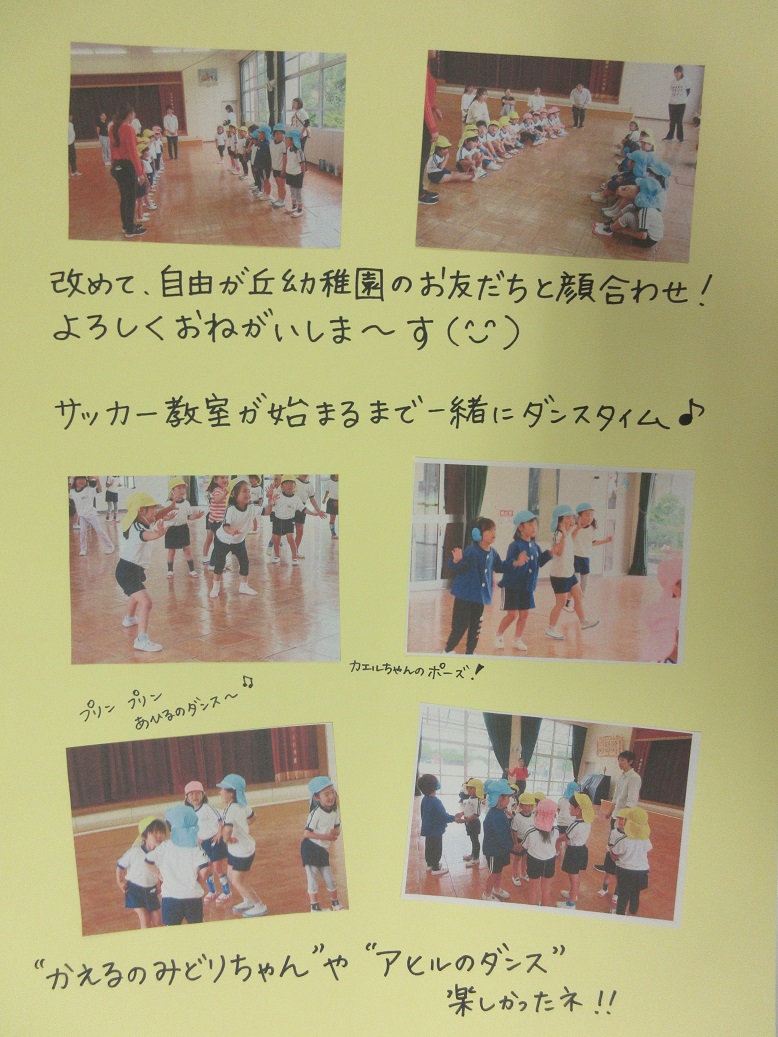 改めて、自由が丘幼稚園のお友だちと顔合わせ！
よろしくおねがいしま〜す(^‿^)
サッカー教室が始まるまで一緒にダンスタイム♪
カエルちゃんのポーズ！
プリン プリン
あひるのダンス〜♫
“かえるのみどりちゃん”や“アヒルのダンス”
楽しかったネ!!